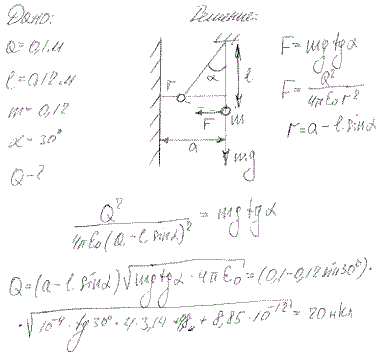 Дано:
Q = 0,1 м
l = 0,12 м
m = 0,12
α = 30°
Q - ?
Решение:
α
l
r
m
F
a
mg
F = mg tg α
F = Q² / 4πε₀ r²
r = a - l·sin α
Q² / 4πε₀(Q - l·sin α)² = mg tg α
Q = (a - l sin α) √mg tg α · 4πε₀ = (0,1 - 0,12 sin 30°) ·
· √10⁻⁴ · tg 30° · 4 · 3,14 + 8,85 · 10⁻¹² = 20 нкл